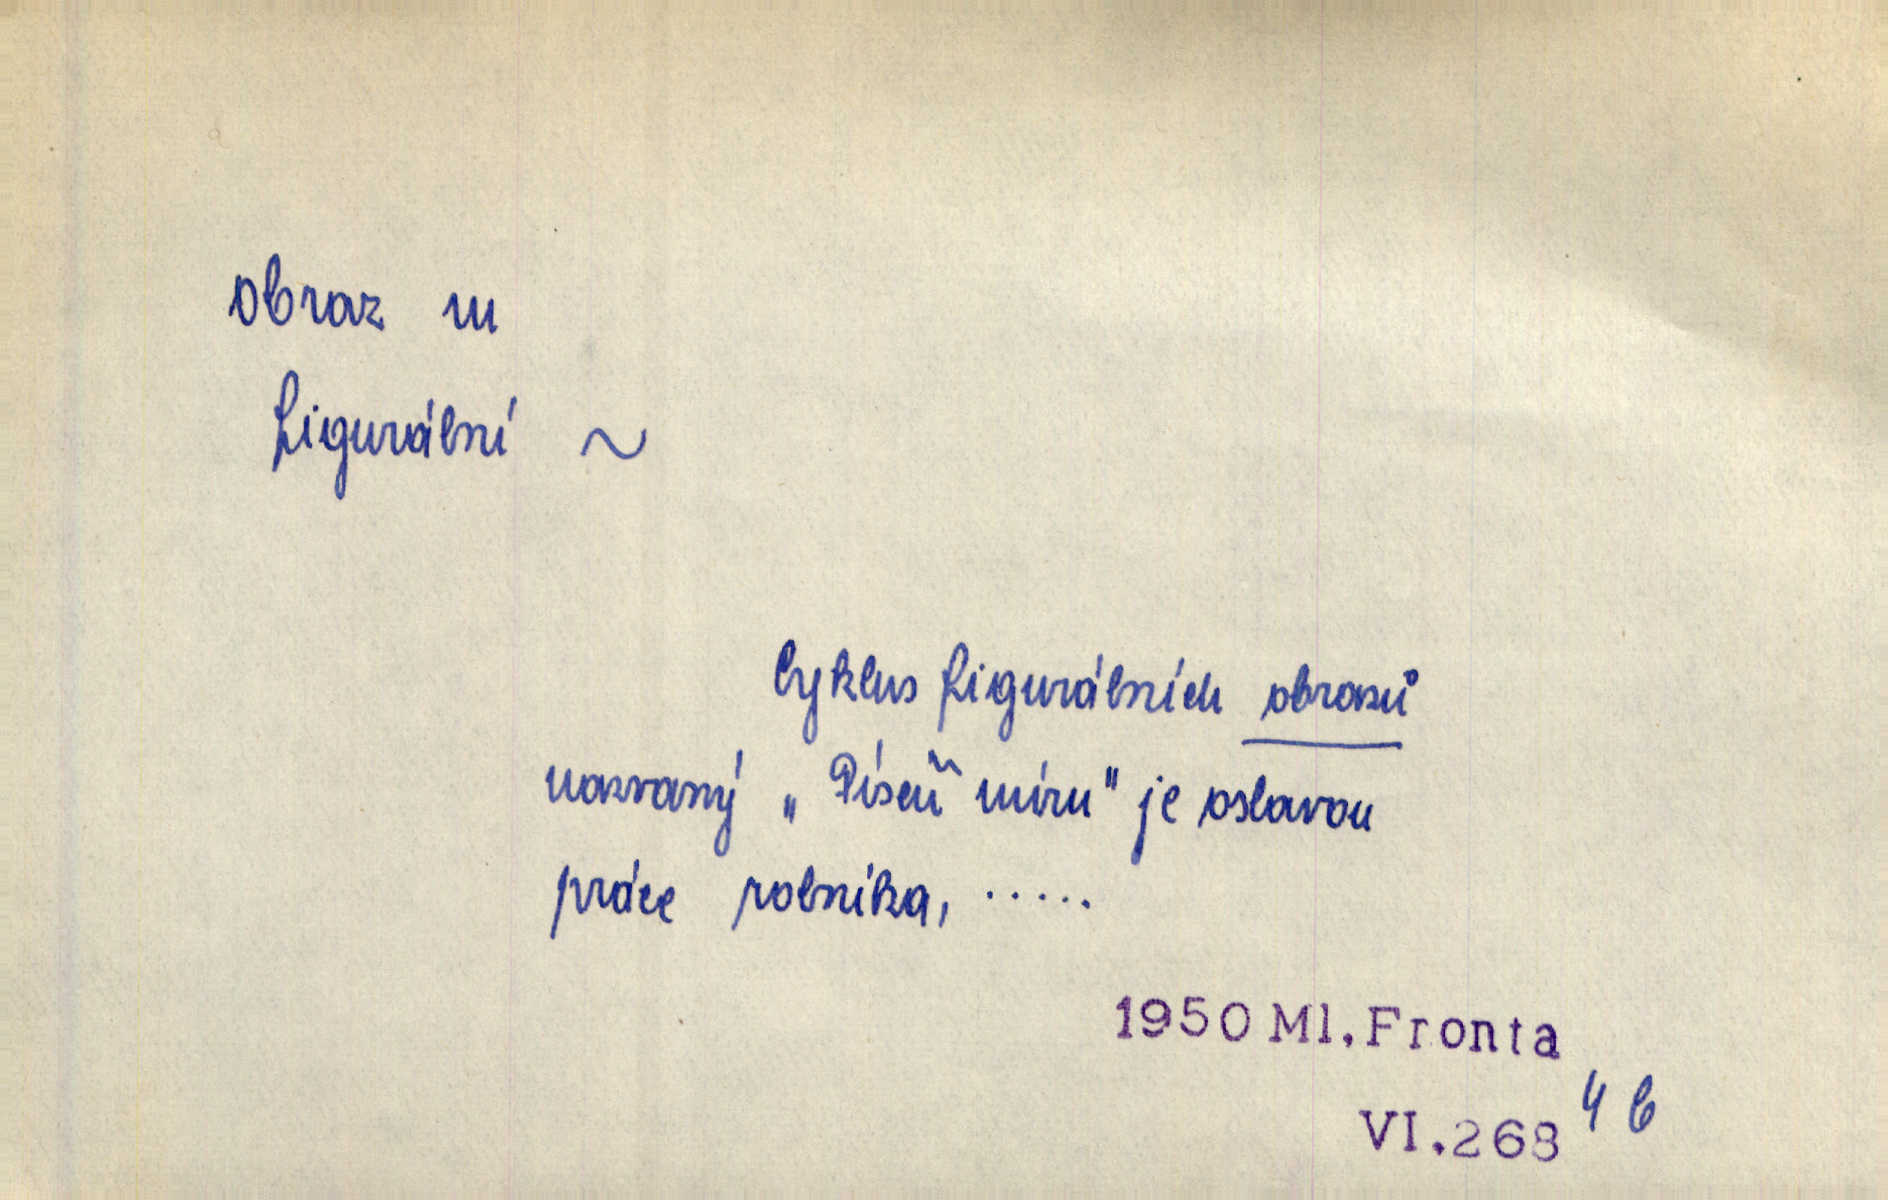 obraz m
figurální ~
Cyklus figurálních obrazů
nazvaný „Píseň míru" je oslavou
práce rolníka, .....
1950 Ml.Fronta
VI.268 4 b